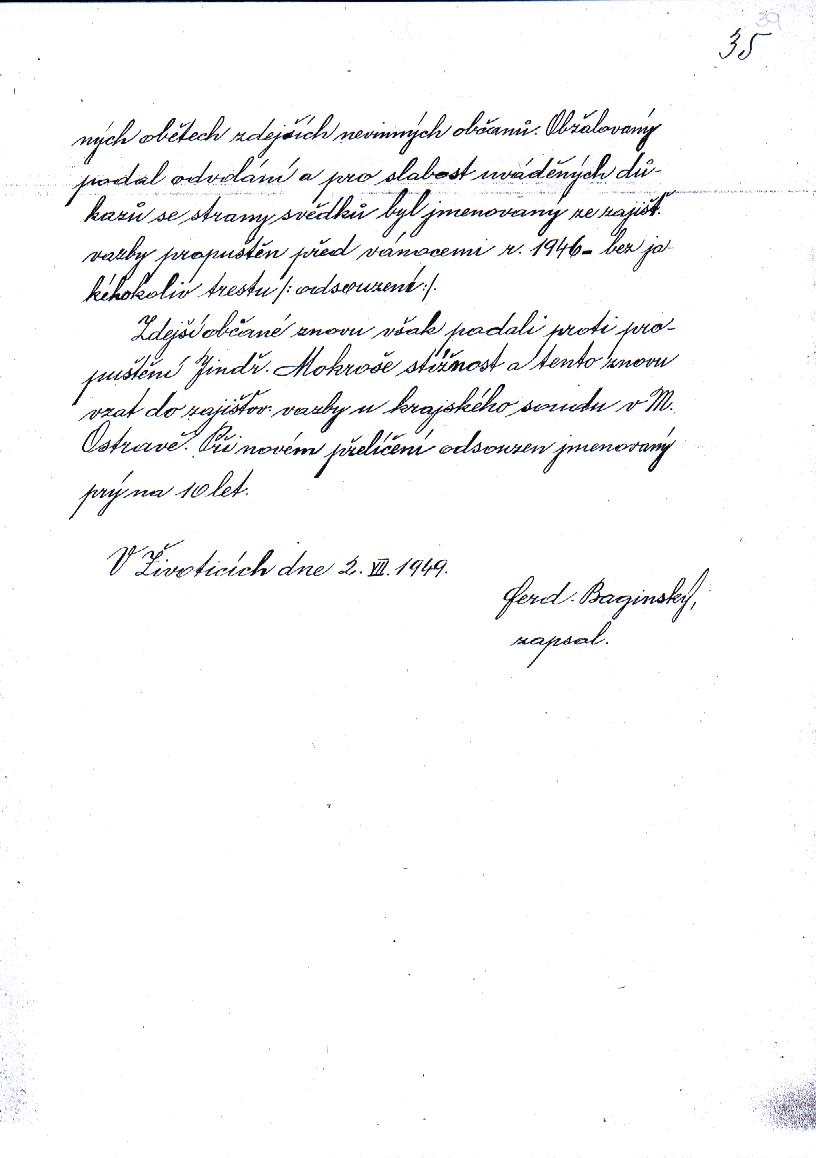 39
35
ných obětech zdejších nevinných občanů. Obžalovaný
podal odvolání a pro slabost uváděných dů-
kazů se strany svědků byl jmenovaný ze zajišť.
vazby propuštěn před vánocemi r. 1946 – bez ja
kéhokoliv trestu /: odsouzení :/.
Zdejší občané znovu však podali proti pro-
puštění Jindř. Mokroše stížnost a tento znovu
vzat do zajišťov. vazby u krajského soudu v M.
Ostravě. Při novém přelíčení odsouzen jmenovaný
prý na 10 let.
V Životicích dne 2. VII. 1949.
Ferd. Baginský,
zapsal.